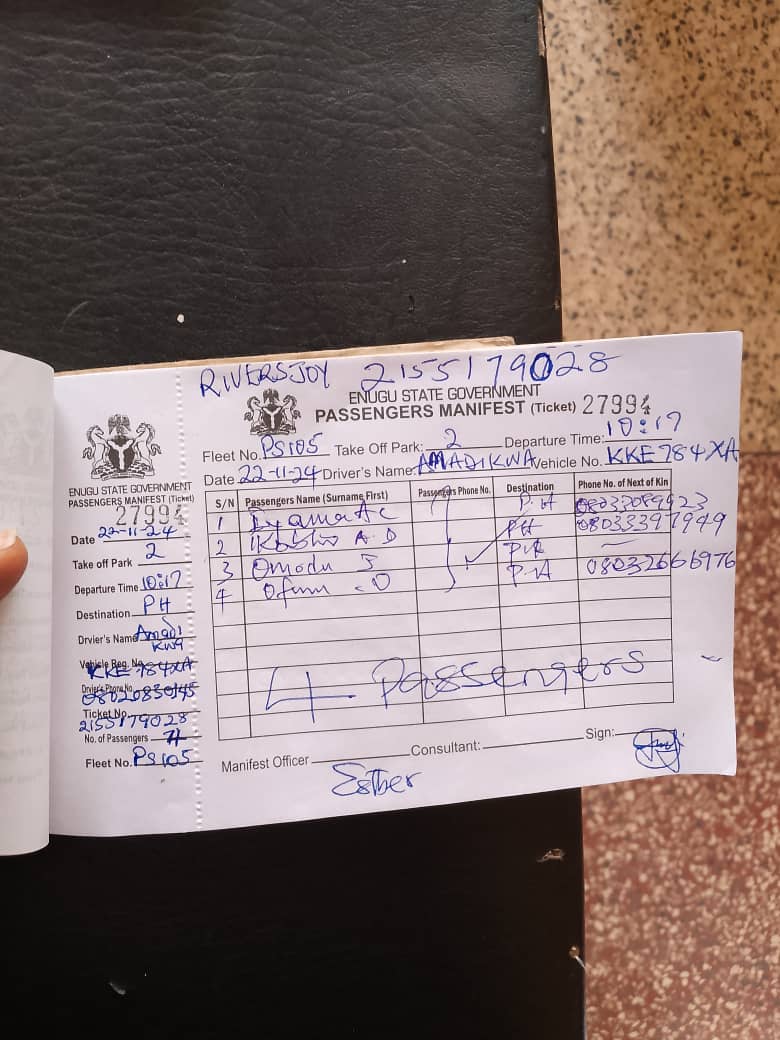 RIVERSJOY 2155179028
ENUGU STATE GOVERNMENT
PASSENGERS MANIFEST (Ticket) 27994
Fleet No. PS105 Take Off Park: 2 Departure Time: 10:17
Date 22-11-24 Driver's Name: AMADIKWA Vehicle No. KKE784XA
S/N Passengers Name (Surname First) Passengers Phone No. Destination Phone No. of Next of Kin
1 P.H
2 A.D PH 08033397949
3 Omodu J
4 P.H 08032666976
4 Passengers
Manifest Officer Consultant: Sign:
Esther
ENUGU STATE GOVERNMENT
PASSENGERS MANIFEST (Ticket)
27994
Date 22-11-24
Take off Park 2
Departure Time 10:17
Destination PH
Drvier's Name Amadi
kwa
Vehicle Reg. No.
KKE 784XA
Driver's Phone No.
Ticket No.
2155179028
No. of Passengers
Fleet No. PS105